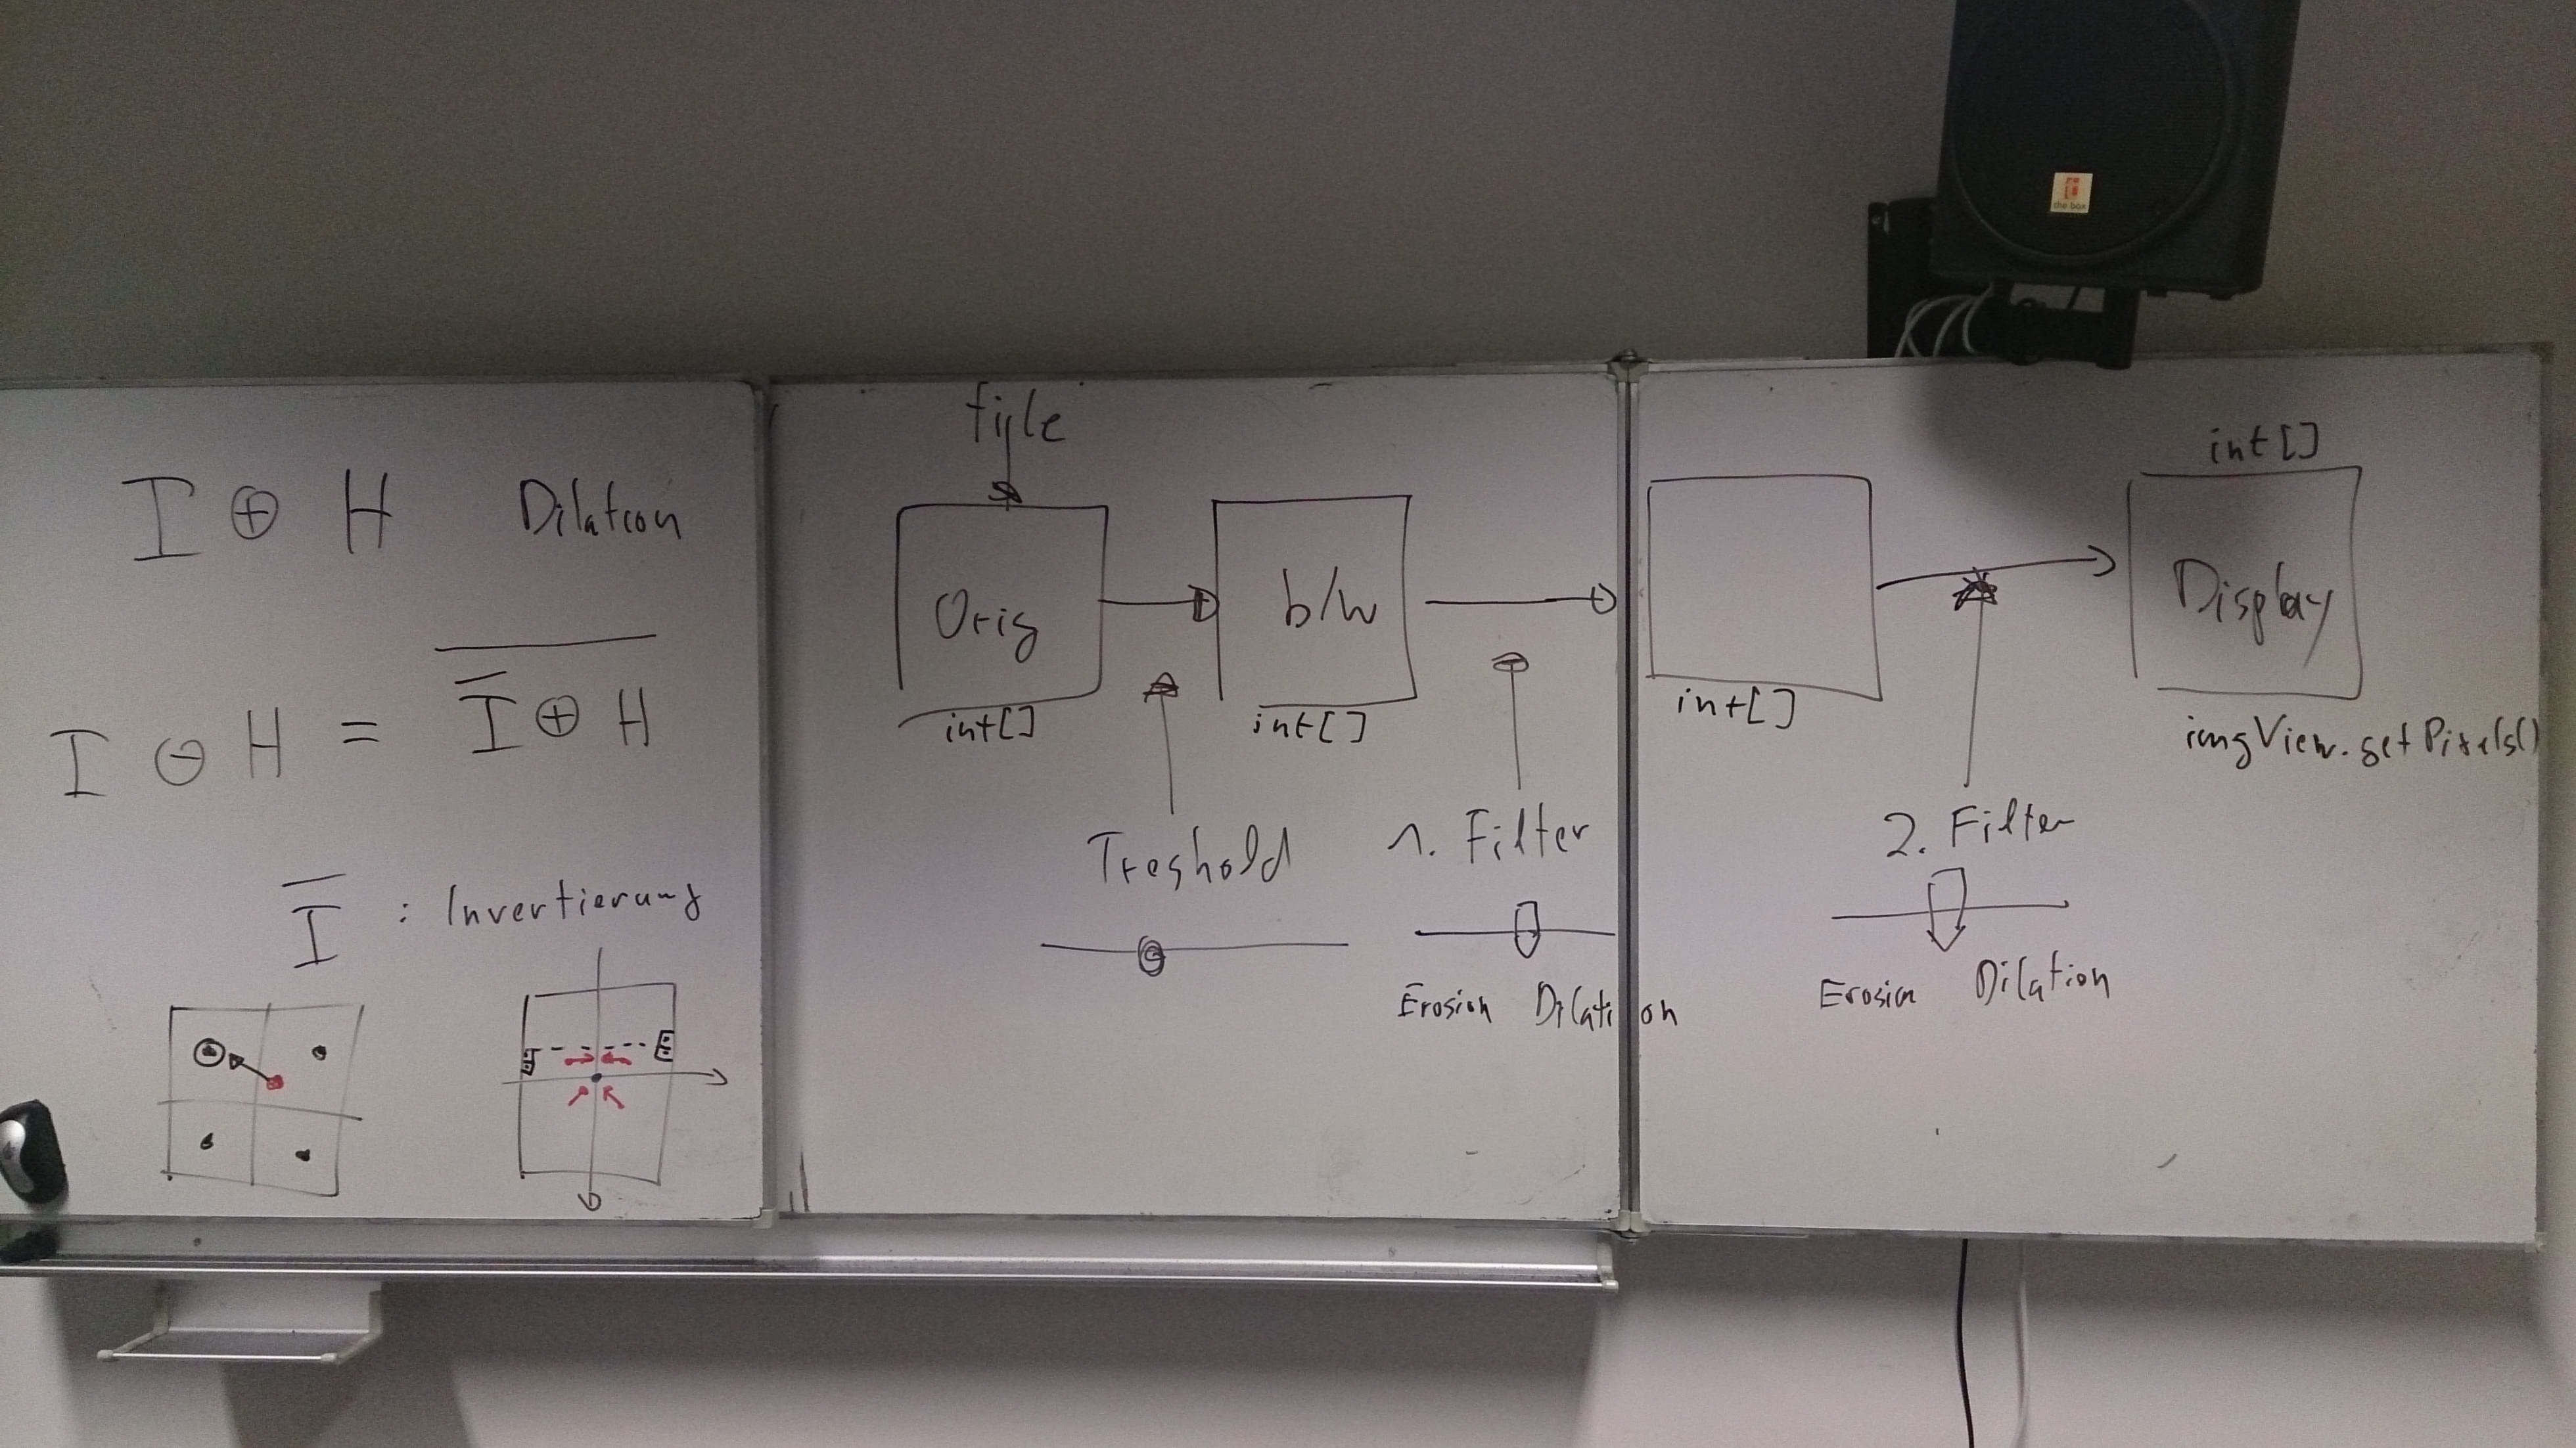 I ⊕ H Dilation
I ⊖ H = \overline{\overline{I} ⊕ H}
\overline{I} : Invertierung
file
Orig
int[]
b/w
int[]
Treshold
1. Filter
Erosion Dilation
int[]
2. Filter
Erosion Dilation
int[]
Display
imgView.getPixels()
the box